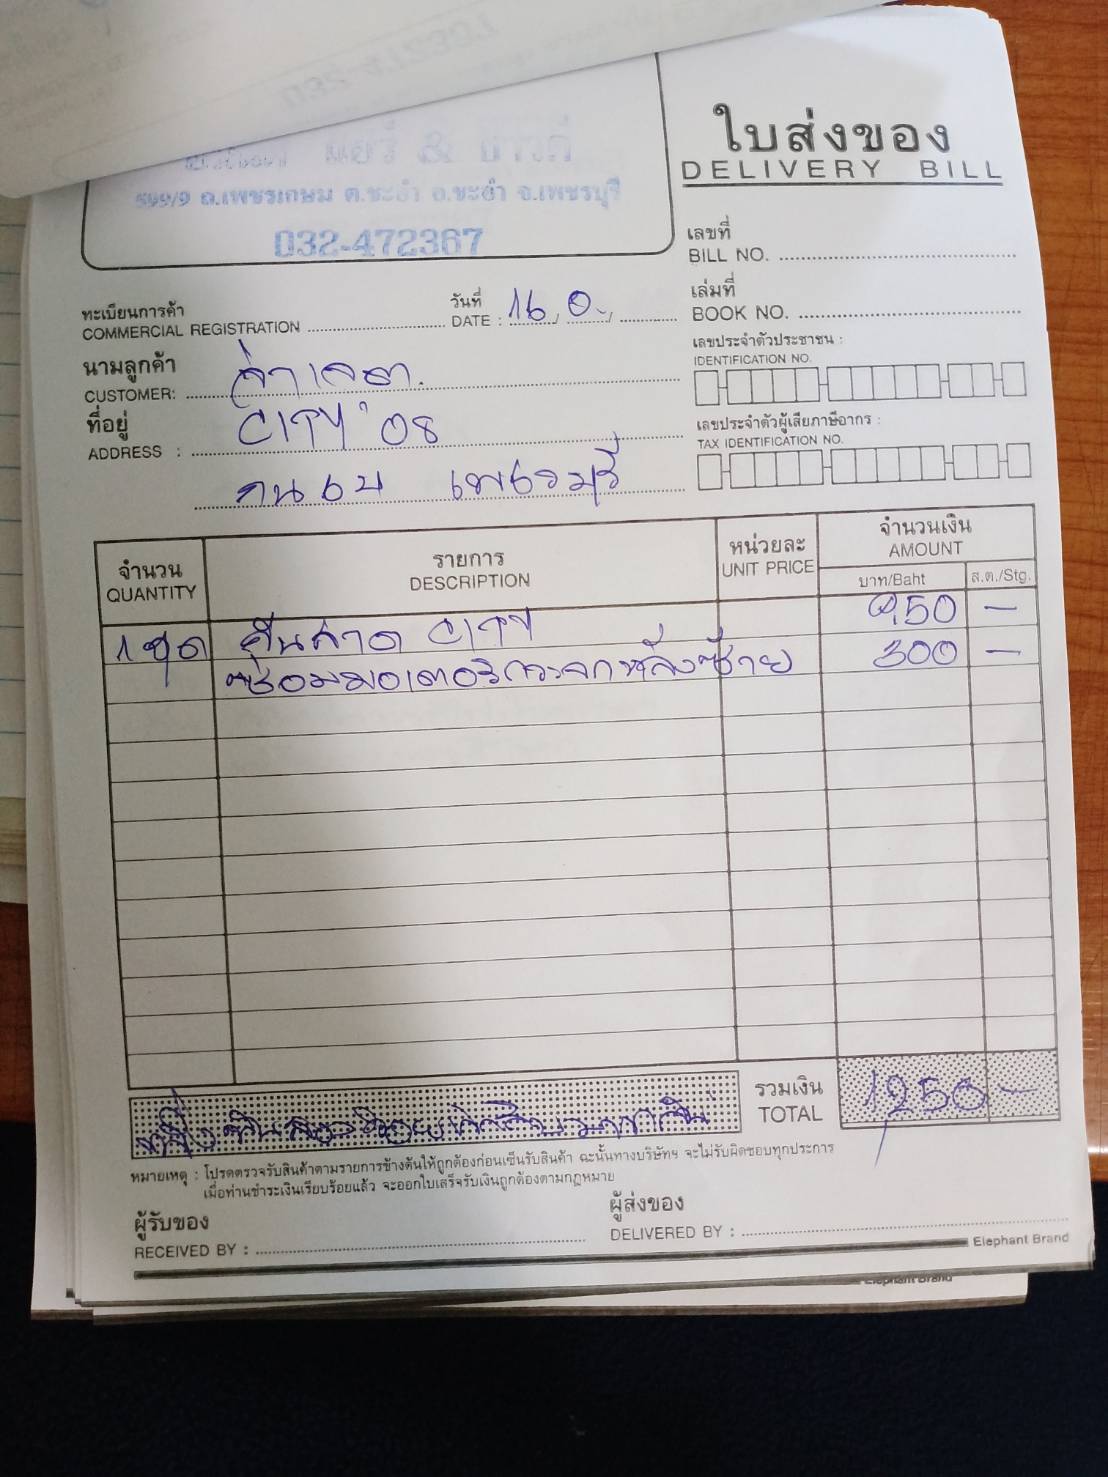 ใบส่งของ
DELIVERY BILL
แอร์ &
599/9 ถ.เพชรเกษม ต.ชะอำ อ.ชะอำ จ.เพชรบุรี
032-472367
เลขที่
BILL NO.
เล่มที่
BOOK NO.
ทะเบียนการค้า
COMMERCIAL REGISTRATION
วันที่
DATE : 16
นามลูกค้า
CUSTOMER:
ที่อยู่
ADDRESS : CITY '08
กน เพชรบุรี
เลขประจำตัวประชาชน :
IDENTIFICATION NO.
เลขประจำตัวผู้เสียภาษีอากร :
TAX IDENTIFICATION NO.
จำนวน รายการ หน่วยละ จำนวนเงิน
QUANTITY DESCRIPTION UNIT PRICE AMOUNT
บาท/Baht ส.ต./Stg.
1 ชุด CITY 950 -
ซ่อมมอเตอร์กระจกหลังซ้าย 300 -
รวมเงิน
TOTAL 1,250 -
หมายเหตุ : โปรดตรวจรับสินค้าตามรายการข้างต้นให้ถูกต้องก่อนเซ็นรับสินค้า ฉะนั้นทางบริษัทฯ จะไม่รับผิดชอบทุกประการ
เมื่อท่านชำระเงินเรียบร้อยแล้ว จะออกใบเสร็จรับเงินถูกต้องตามกฎหมาย
ผู้รับของ
RECEIVED BY :
ผู้ส่งของ
DELIVERED BY :
Elephant Brand
Elephant Brand